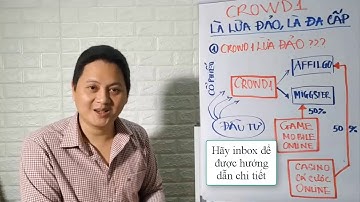 CROWD1
LÀ LỪA ĐẢO, LÀ ĐA CẤP
① CROWD1 LỪA ĐẢO ???
CỔ PHIẾU
AFFILGO
CROWD1
MIGGSTER
50%
50%
ĐẦU TƯ
GAME
MOBILE
ONLINE
CASINO
CÁ CƯỢC
ONLINE
Hãy inbox để
được hướng
dẫn chi tiết